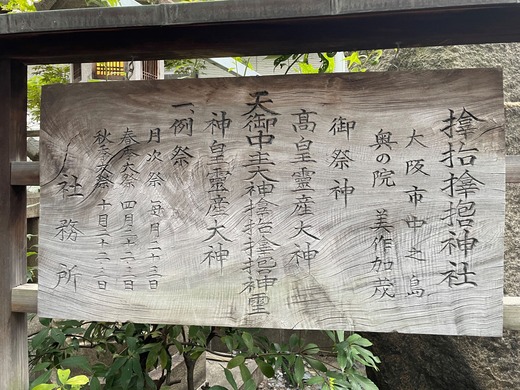 𪮷抬𪮷𪮇神社
大阪市中之島
奥の院 美作加茂
御祭神
髙皇靈産大神
天御中主大神𪮷抬𪮷𪮇神霊
神皇靈産大神
一例祭
月次祭 毎月二十三日
春季大祭 四月二十二・三日
秋季大祭 十月二十二・三日
社務所